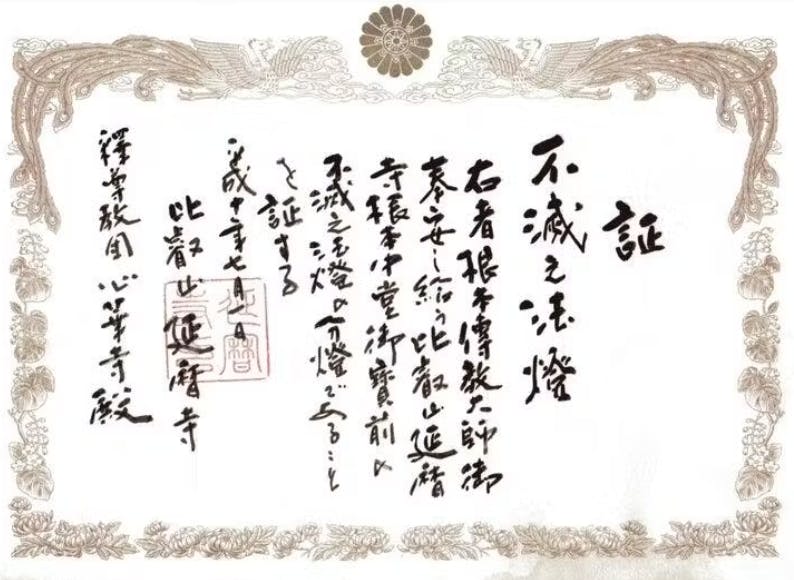 証
不滅之法燈
右者根本傳教大師御
奉安し給う比叡山延暦
寺根本中堂御寶前の
不滅之法燈の分燈であること
を証する
平成十年七月一日
比叡山延暦寺
釋尊教団心華寺殿